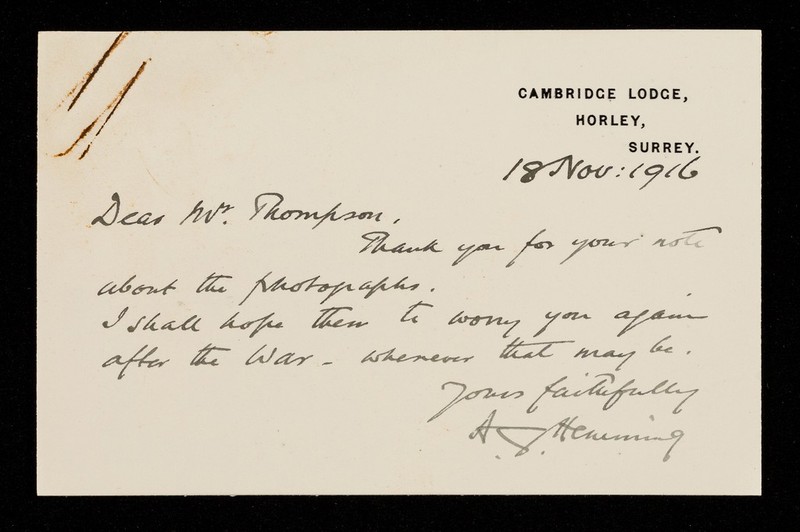 CAMBRIDGE LODGE,
HORLEY,
SURREY.
18 Nov: 1916
Dear Mr. Thompson,
Thank you for your note
about the photographs.
I shall hope then to worry you again
after the War - whenever that may be.
Yours faithfully
A. J. Hemming